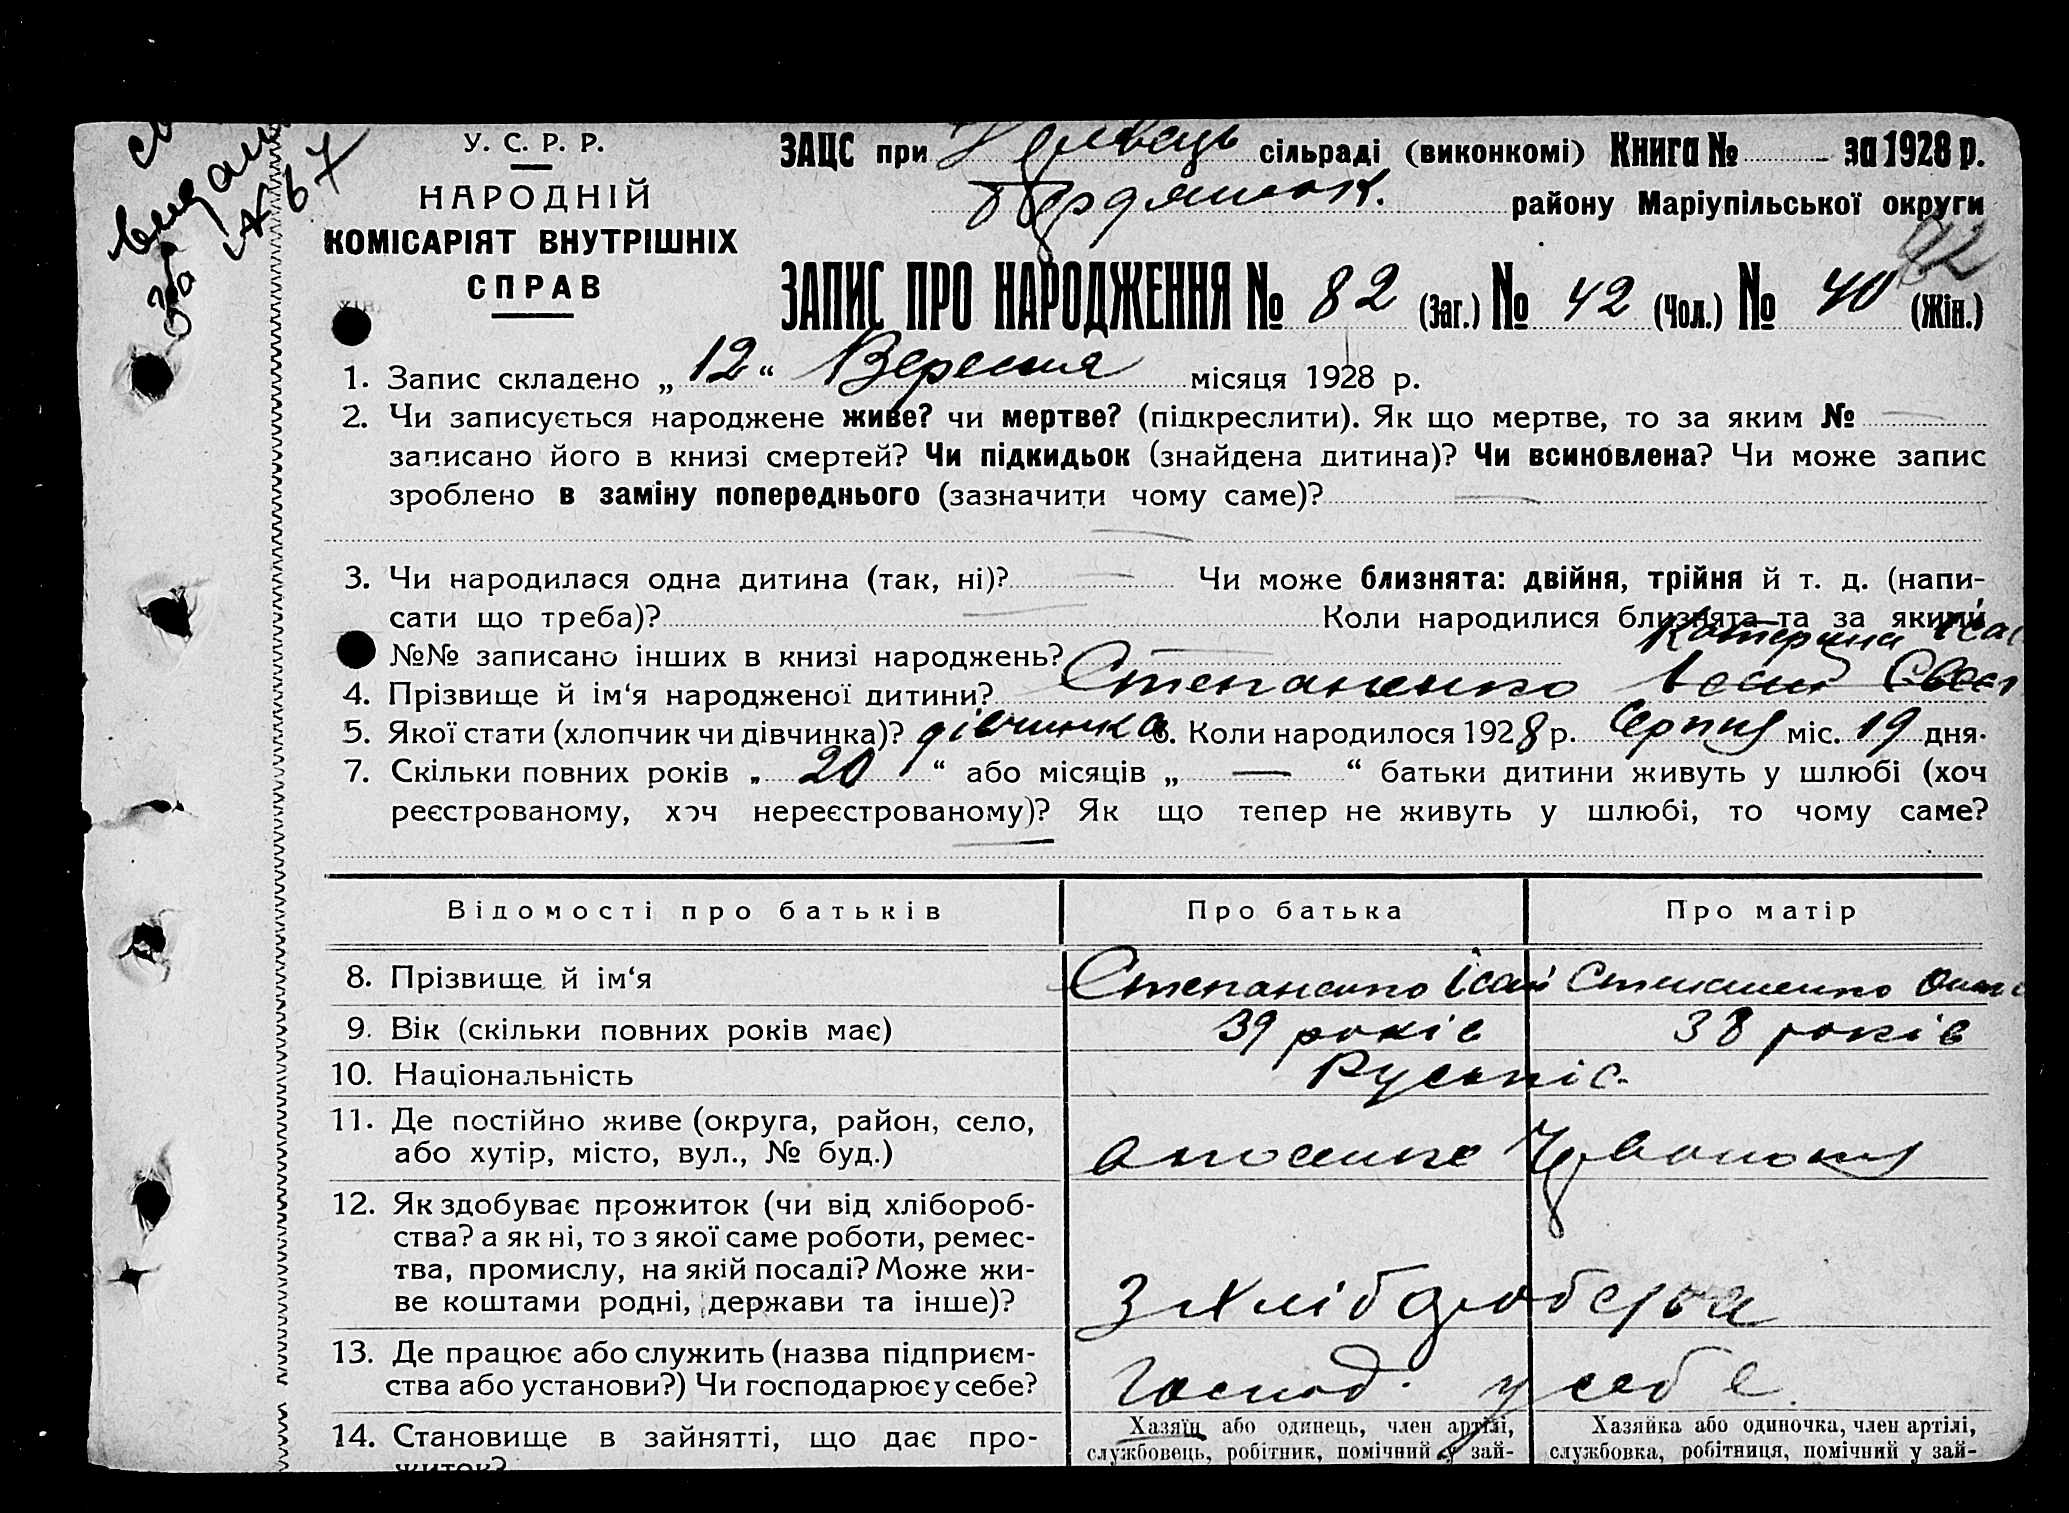 У. С. Р. Р.
НАРОДНІЙ
КОМІСАРІЯТ ВНУТРІШНІХ
СПРАВ
№ 67
ЗАЦС при сільраді (виконкомі) Книга № за 1928 р.
Бердянськ. району Маріупільської округи
82
ЗАПИС ПРО НАРОДЖЕННЯ № 82 (Заг.) № 42 (Чол.) № 40 (Жін.)
1. Запис складено „ 12 “ Вересня місяця 1928 р.
2. Чи записується народжене живе? чи мертве? (підкреслити). Як що мертве, то за яким №
записано його в книзі смертей? Чи підкидьок (знайдена дитина)? Чи всиновлена? Чи може запис
зроблено в заміну попереднього (зазначити чому саме)?
3. Чи народилася одна дитина (так, ні)? Чи може близнята: двійня, трійня й т. д. (напи-
сати що треба)? Коли народилися близнята та за якими
Катерина
№№ записано інших в книзі народжень?
4. Прізвище й ім‘я народженої дитини? Степаненко
5. Якої стати (хлопчик чи дівчинка)? дівчинка 6. Коли народилося 1928 р. Серпня міс. 19 дня.
7. Скільки повних років „ 20 “ або місяців „ — “ батьки дитини живуть у шлюбі (хоч
реєстрованому, хоч нереєстрованому)? Як що тепер не живуть у шлюбі, то чому саме?
Відомості про батьків Про батька Про матір
8. Прізвище й ім‘я Степаненко Ісай Степаненко
9. Вік (скільки повних років має) 39 років 38 років
10. Національність Руські с.
11. Де постійно живе (округа, район, село,
або хутір, місто, вул., № буд.)
12. Як здобуває прожиток (чи від хлібороб-
ства? а як ні, то з якої саме роботи, ремес-
тва, промислу, на якій посаді? Може жи-
ве коштами родні, держави та інше)?
З хліборобства
13. Де працює або служить (назва підприєм-
ства або установи?) Чи господарює у себе?
Господ. у себе
14. Становище в зайнятті, що дає про-
житок?
Хазяїн або одинець, член артілі,
службовець, робітник, помічний у зай-
Хазяйка або одиночка, член артілі,
службовка, робітниця, помічний у зай-